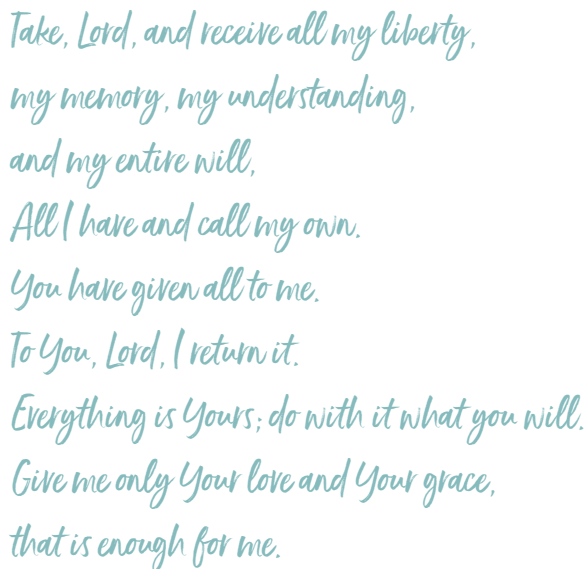 Take, Lord, and receive all my liberty,
my memory, my understanding,
and my entire will,
All I have and call my own.
You have given all to me.
To You, Lord, I return it.
Everything is Yours; do with it what you will.
Give me only Your love and Your grace,
that is enough for me.